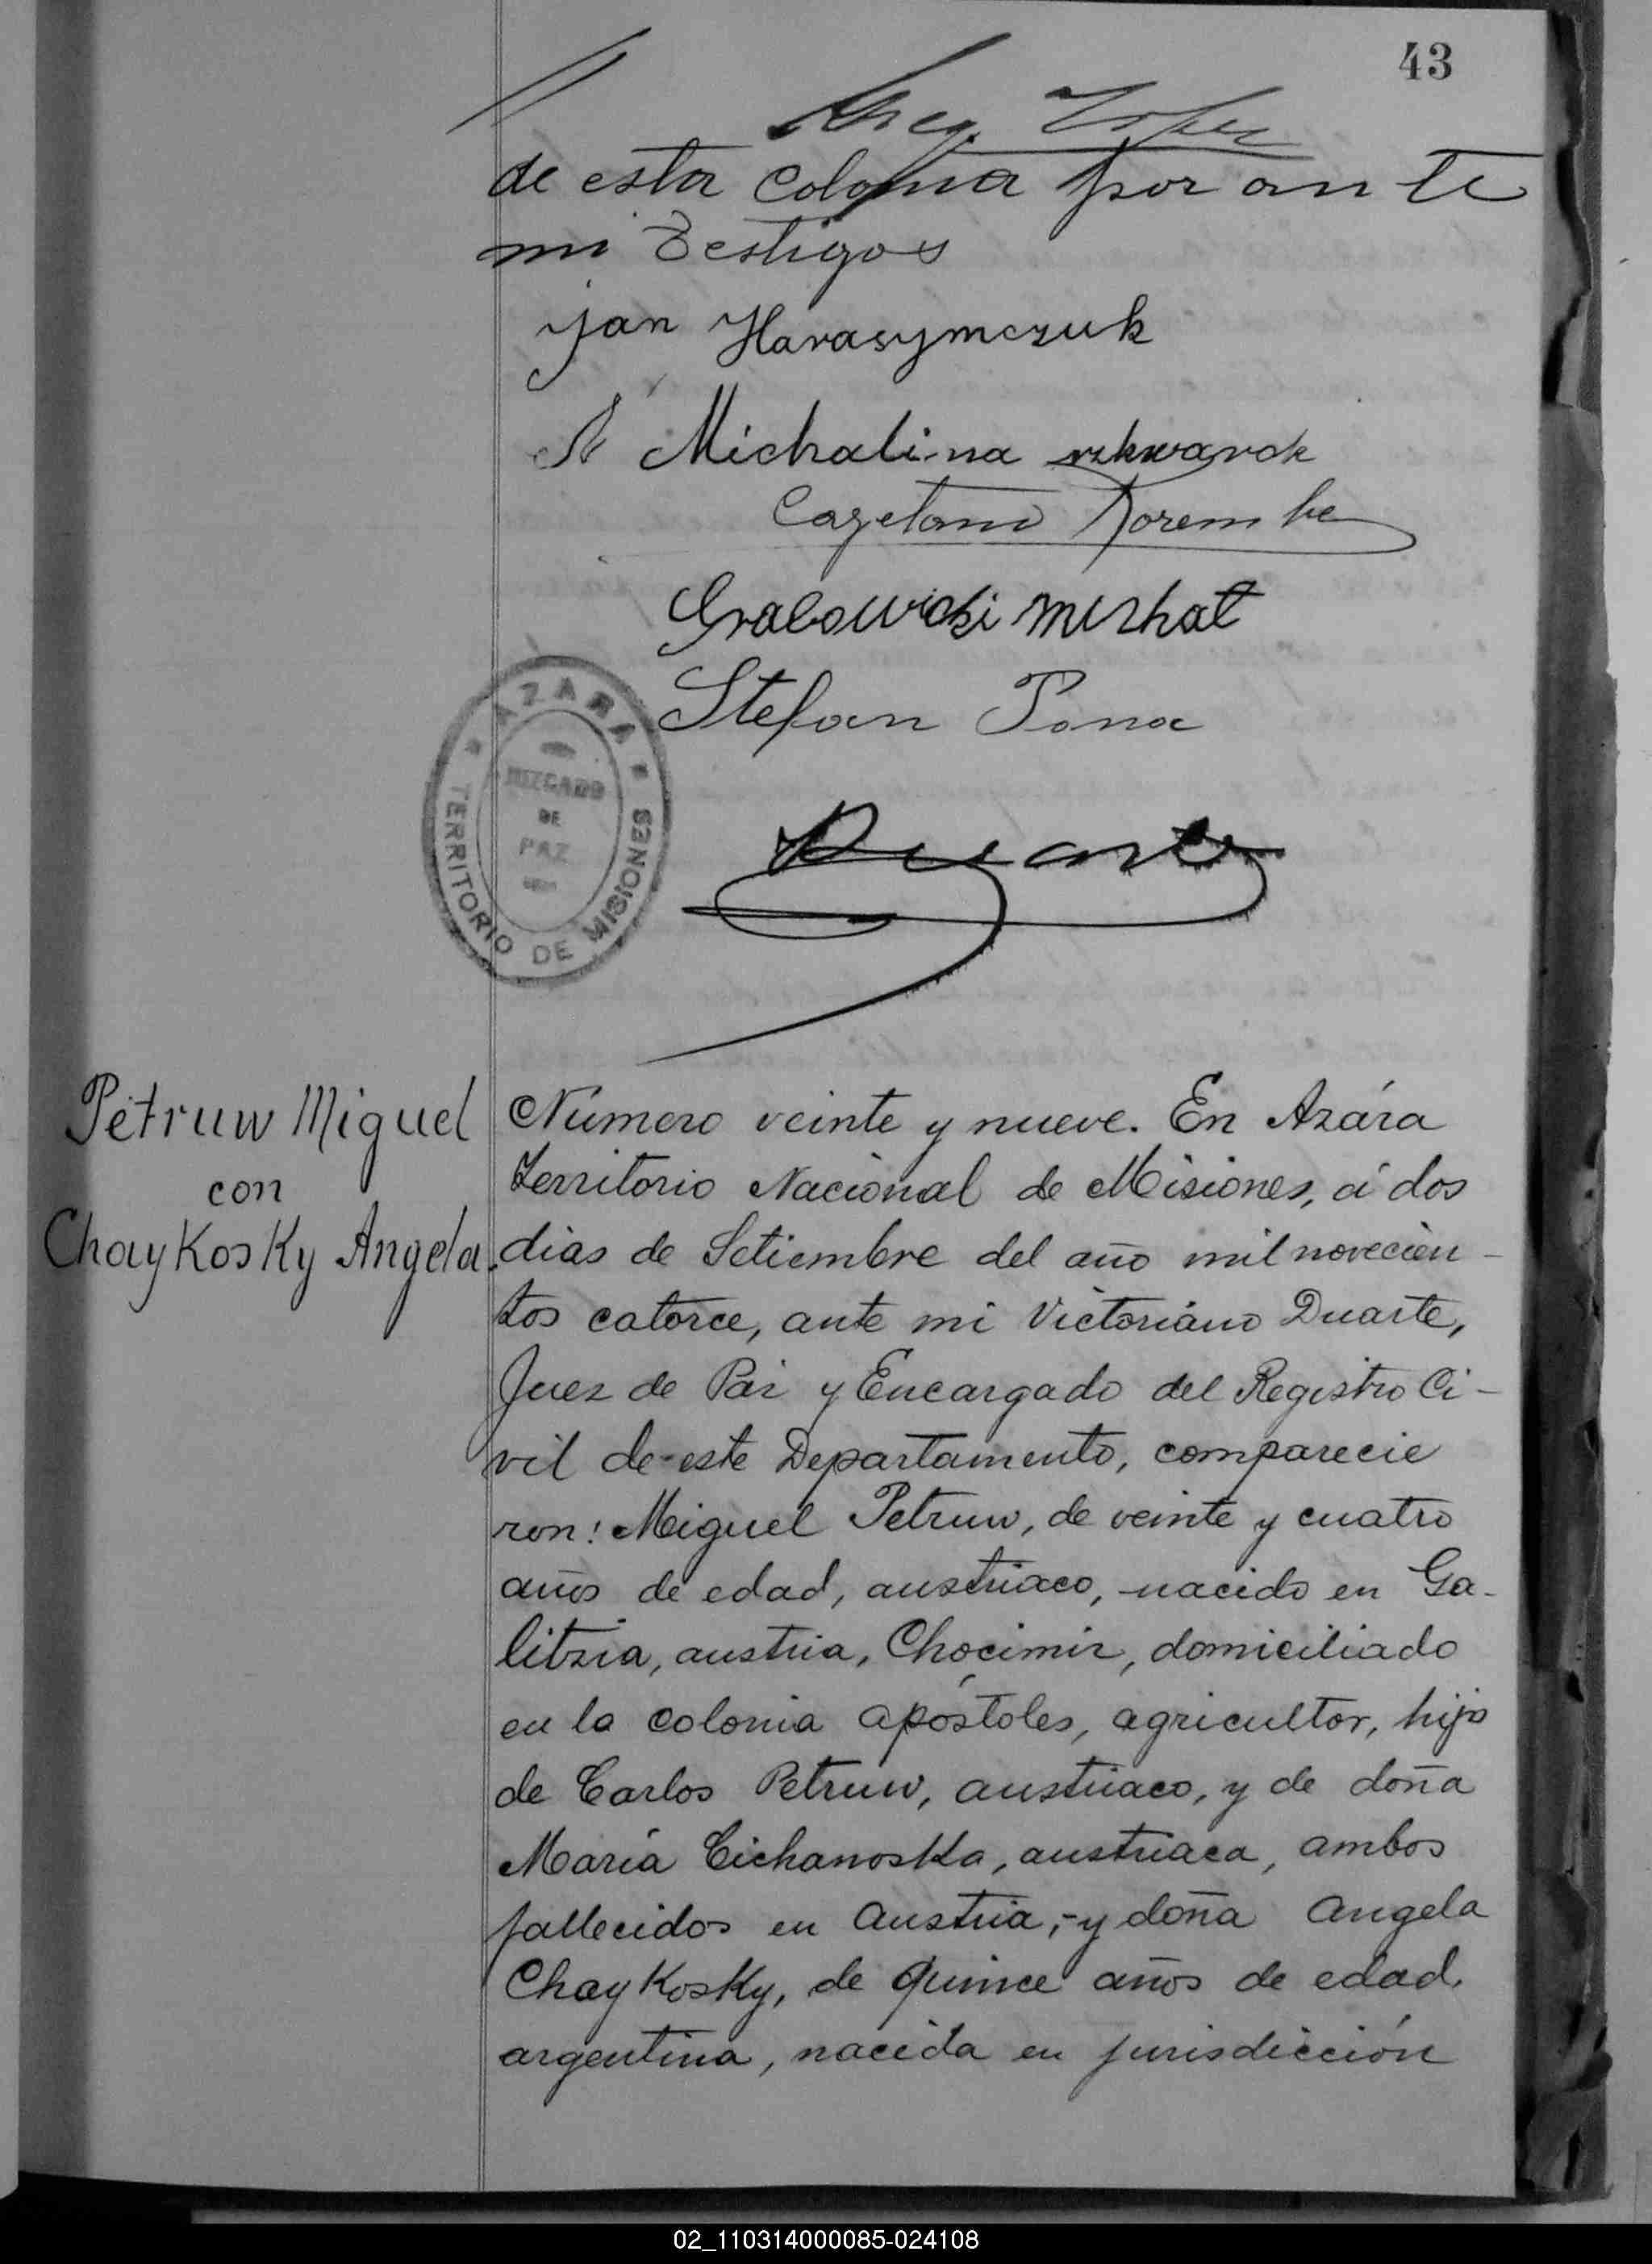 43
de esta Colonia por ante
mi Testigos
Jan Harasymczuk
Michalina
Cayetano
Grabowski
Stefan Pona
AZARA
JUZGADO
DE
PAZ
TERRITORIO DE MISIONES
Duarte
Petruw Miguel
con
ChayKosKy Angela.
Número veinte y nueve. En Azára
Territorio Nacional de Misiones, á dos
dias de Setiembre del año mil novecien-
tos catorce, ante mi Victoriano Duarte,
Juez de Paz y Encargado del Registro Ci-
vil de este Departamento, comparecie
ron: Miguel Petruw, de veinte y cuatro
años de edad, austriaco, nacido en Ga-
litzia, austria, Chocimir, domiciliado
en la colonia apóstoles, agricultor, hijo
de Carlos Petruw, austriaco, y de doña
María CichanosKa, austriaca, ambos
fallecidos en Austria,-y doña Angela
ChayKosKy, de quince años de edad,
argentina, nacida en jurisdicción
02_110314000085-024108